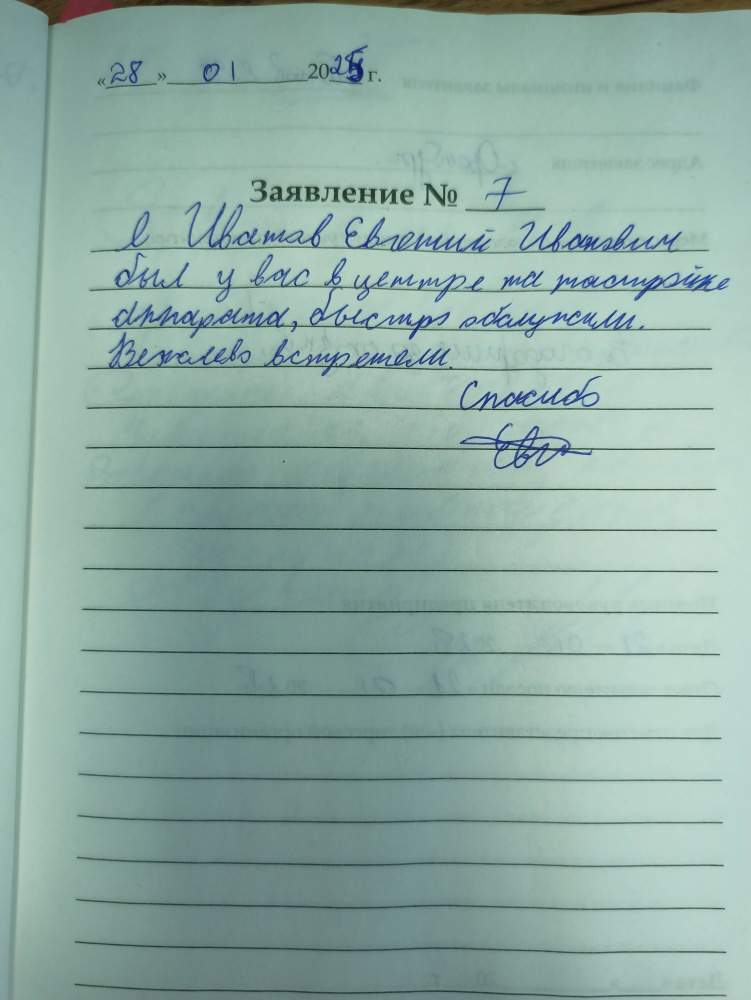 «28» 01 2025 г.
Заявление № 7
Я Иватав Евгений Иванович
был у вас в центре на настройке
аппарата, быстро обслужили.
Вежлево встретели.
Спасибо